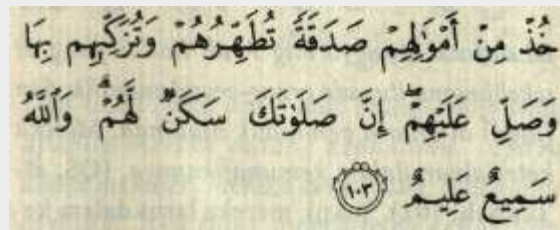 خُذْ مِنْ أَمْوَٰلِهِمْ صَدَقَةً تُطَهِّرُهُمْ وَتُزَكِّيهِم بِهَا
وَصَلِّ عَلَيْهِمْ ۖ إِنَّ صَلَوٰتَكَ سَكَنٌ لَّهُمْ ۗ وَٱللَّهُ
سَمِيعٌ عَلِيمٌ ١٠٣